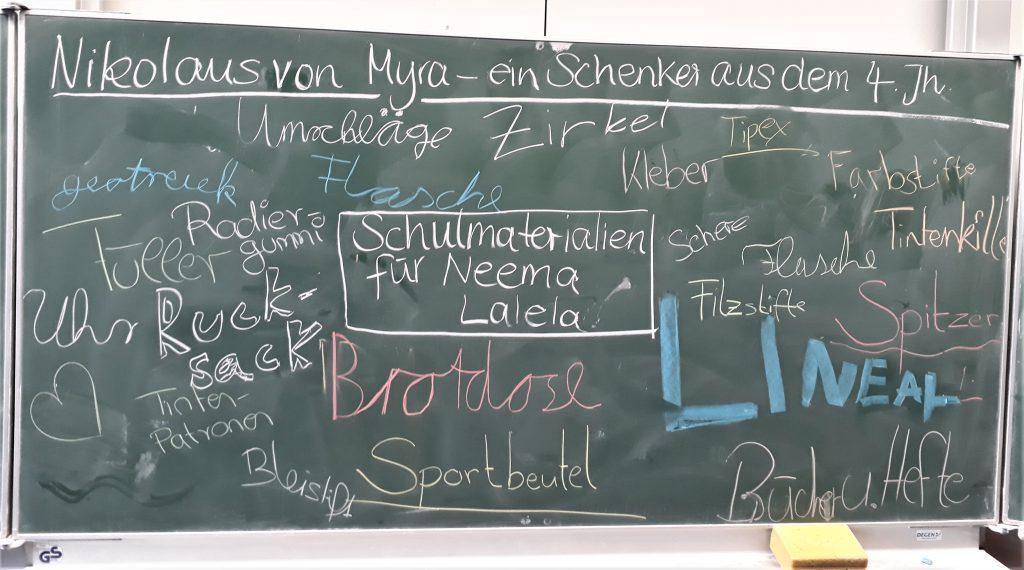 Nikolaus von Myra – ein Schenker aus dem 4. Jh.
Umschläge Zirkel Tipex
Kleber Farbstifte
Flasche
Radier-
gummi
Füller
Schulmaterialien
für Neema
Lalela
Schere
Flasche
Tintenkille
Filzstifte
Spitzer
Uhr
Ruck-
sack
Brotdose
LINEAL
Tinten-
Patronen
Bleistift
Sportbeutel
Bücher u. Hefte
GS
DEGEN